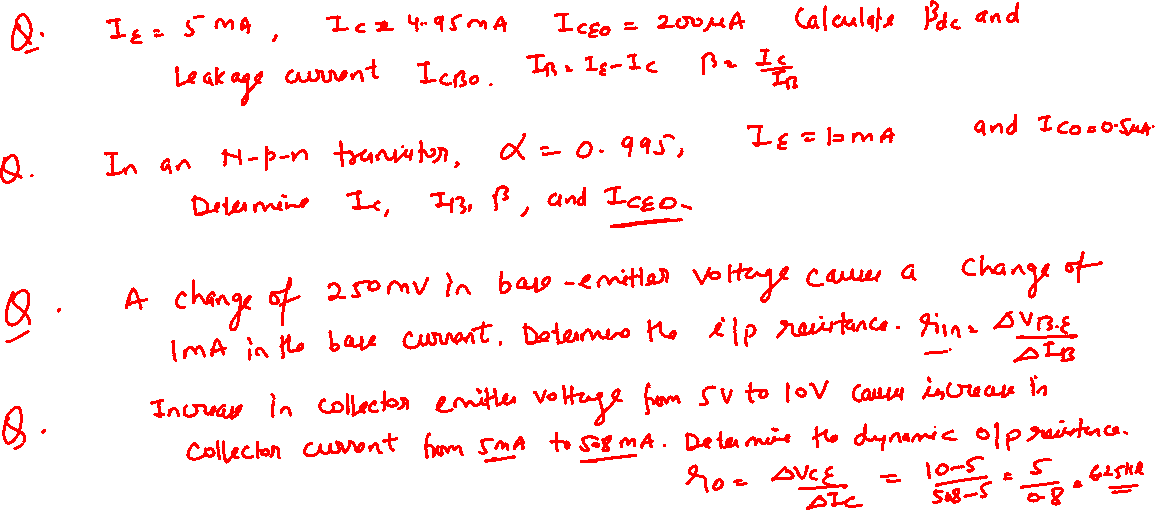 Q. I_E = 5 mA, I_C = 4.95 mA I_CEO = 200 μA Calculate β_dc and
Leakage current I_CBO. I_B = I_E - I_C β = I_C / I_B
Q. In an N-p-n transistor, α = 0.995, I_E = 10 mA and I_CO = 0.5 μA.
Determine I_C, I_B, β, and I_CEO.
Q. A change of 250 mV in base-emitter voltage causes a change of
1mA in the base current. Determine the i/p resistance. r_in = ΔV_B.E / ΔI_B
Q. Increase in collector emitter voltage from 5V to 10V causes increase in
collector current from 5mA to 5.8 mA. Determine the dynamic o/p resistance.
r_o = ΔV_CE / ΔI_C = 10-5 / 5.8-5 = 5 / 0.8 = 6.25 kΩ